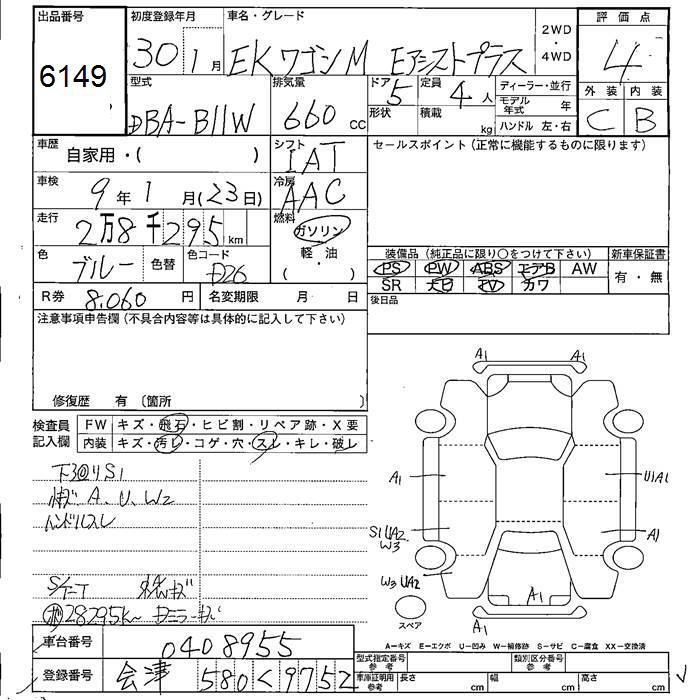 出品番号 初度登録年月 車名・グレード 2WD・4WD 評価点
6149 30 1月 EKワゴン M Eアシストプラス 4
型式 排気量 ドア 5 定員 4人 ディーラー・並行 外装 内装
DBA-B11W 660cc 形状 積載 kg モデル年式 年 C B
ハンドル 左・右
車歴 自家用・( ) シフト IAT セールスポイント(正常に機能するものに限ります)
車検 9年1月(23日) 冷房 AAC
走行 2万8千295km 燃料 ガソリン
軽・油
( )
色 ブルー 色替 色コード D26 装備品(純正品に限り○をつけて下さい) 新車保証書
PS PW ABS エアB AW 有・無
SR ナビ TV カワ
R券 8,060円 名変期限 月 日 後日品
注意事項申告欄(不具合内容等は具体的に記入して下さい)
修復歴 有 〔箇所 〕
検査員記入欄 FW キズ・飛石・ヒビ割・リペア跡・X要
内装 キズ・汚レ・コゲ・穴・スレ・キレ・破レ
A1 A1
A1 U1A1
S1UA2 A1
W3
W3 UA2 A1
A1
スペア
下回りS1
A、U、W2
ハンドルスレ
A=キズ E=エクボ U=凹み W=補修跡 S=サビ C=腐食 XX=交換済
車台番号 0408955
登録番号 会津 580 く 9752
型式指定番号 参考 類別区分番号 参考
車庫証明用 参考 長さ cm 幅 cm 高さ cm